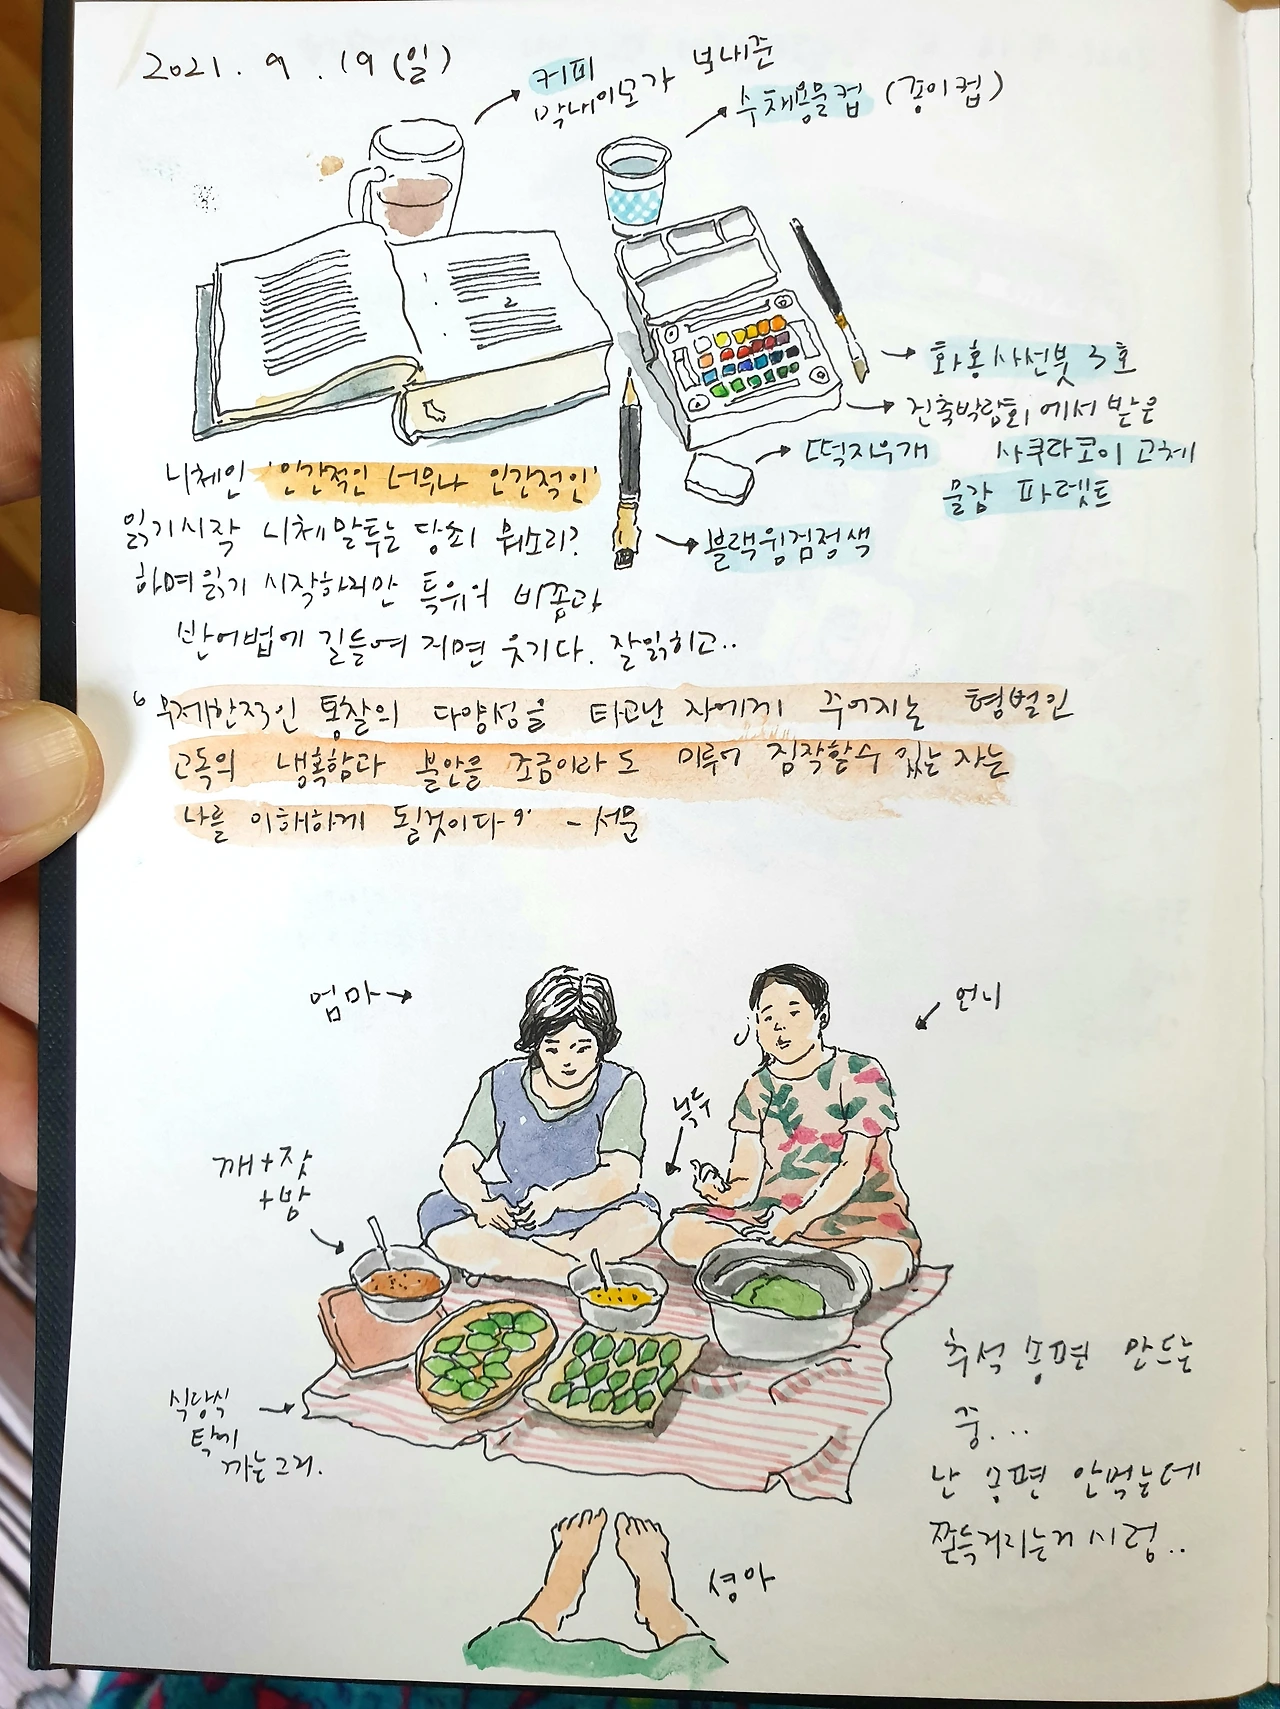 2021. 9. 19 (일)
커피
막내이모가 보내준
수채용물컵 (종이컵)
화홍사선붓 3호
건축박람회에서 받은
사쿠라코이 고체
물감 파렛트
떡지우개
블랙윙검정색
니체인 '인간적인 너무나 인간적인'
읽기시작 니체말투는 당최 뭔소리?
하며읽기 시작하지만 특유의 비꼼과
반어법에 길들여 지면 웃기다. 잘읽히고..
"무제한적인 통찰의 다양성을 타고난 자에게 주어지는 형벌인
고독의 냉혹함과 불안을 조금이라도 미루어 짐작할수 있는 자는
나를 이해하게 될것이다" - 서문
엄마
언니
녹두
깨+잣
+밤
식당식
탁에
까는그거.
추석 송편 만드는
중...
난 송편 안먹는데
쫀득거리는거 시렁..
셩아